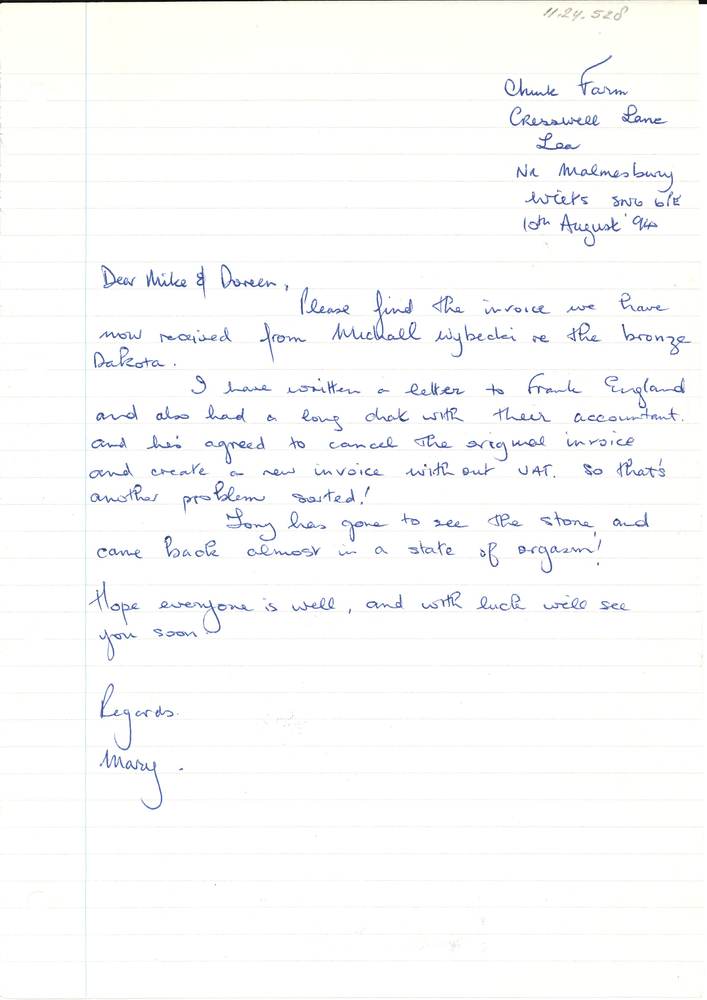 11.24.528
Chink Farm
Cresswell Lane
Lea
Nr Malmesbury
Wilts SN16
10th August '94
Dear Mike & Doreen,
Please find the invoice we have
now received from Michall Wybecki re the bronze
Dakota.
I have written a letter to Frank England
and also had a long chat with their accountant.
and he's agreed to cancel the original invoice
and create a new invoice without VAT. So that's
another problem sorted!
Tony has gone to see the stone, and
came back almost in a state of orgasm!
Hope everyone is well, and with luck we'll see
you soon.
Regards.
Mary.